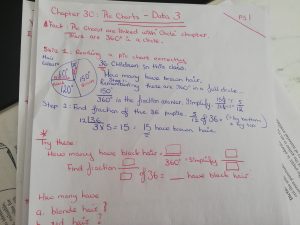 Chapter 30: Pie Charts - Data 3
PS1
*Fact: Pie Chart are linked with Circle chapter.
There are 360° in a circle.
Skill 1: Reading a pie chart correctly
Hair Colours
36 Children in this class.
How many have brown hair.
Step 1 Remembering there are 360° in a full circle...
150°
120°
150°/360° is the fraction answer. Simplify 15/36 = 5/12
Step 2: Find fraction of the 36 pupils. 5/12 of 36 = (÷ by bottom x by top)
12|36
3 x 5 = 15 = 15 have brown hair.
* Try these
How many have black hair = /360° = simplify
Find fraction of 36 = __ have black hair
How many have
a. blonde hair?
b. red hair?